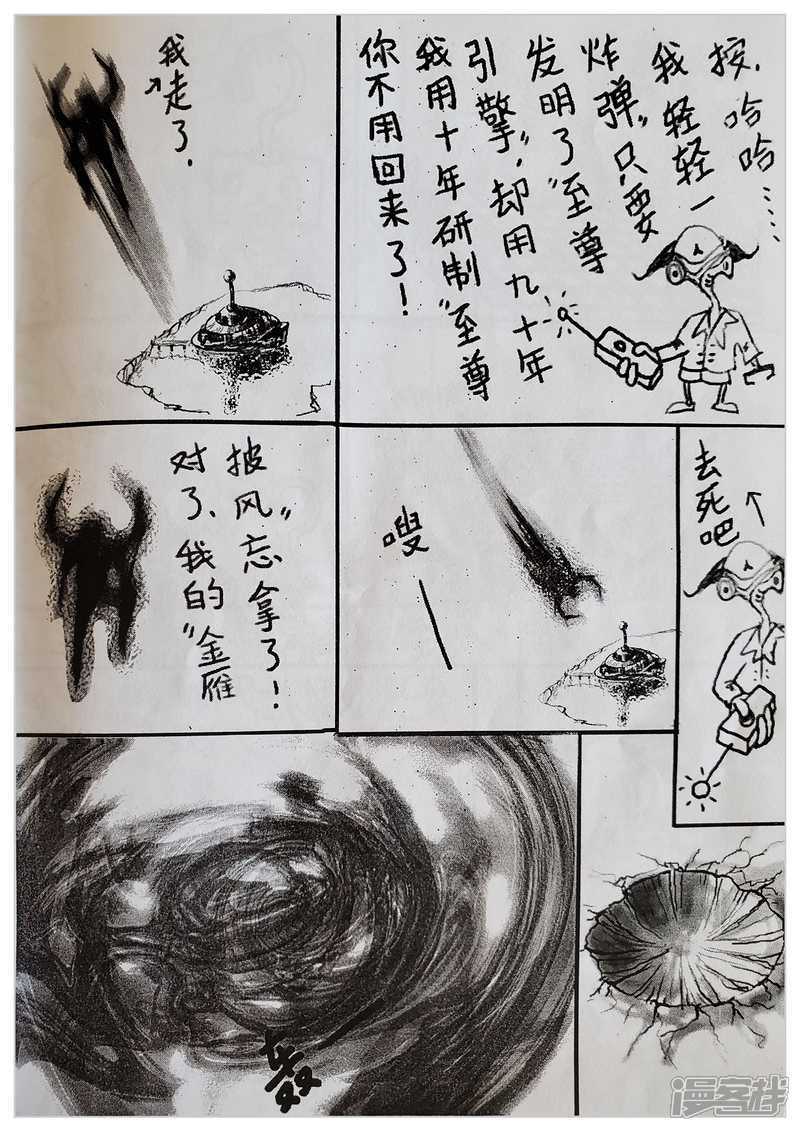 我走了,
你不用回来了!
我用十年研制“至尊
引擎”,却用九十年
发明了“至尊
炸弹”,只要
我轻轻一
按,哈哈……
对了,我的“金雁
披风”忘拿了!
嗖—
去死吧
轰
漫客栈